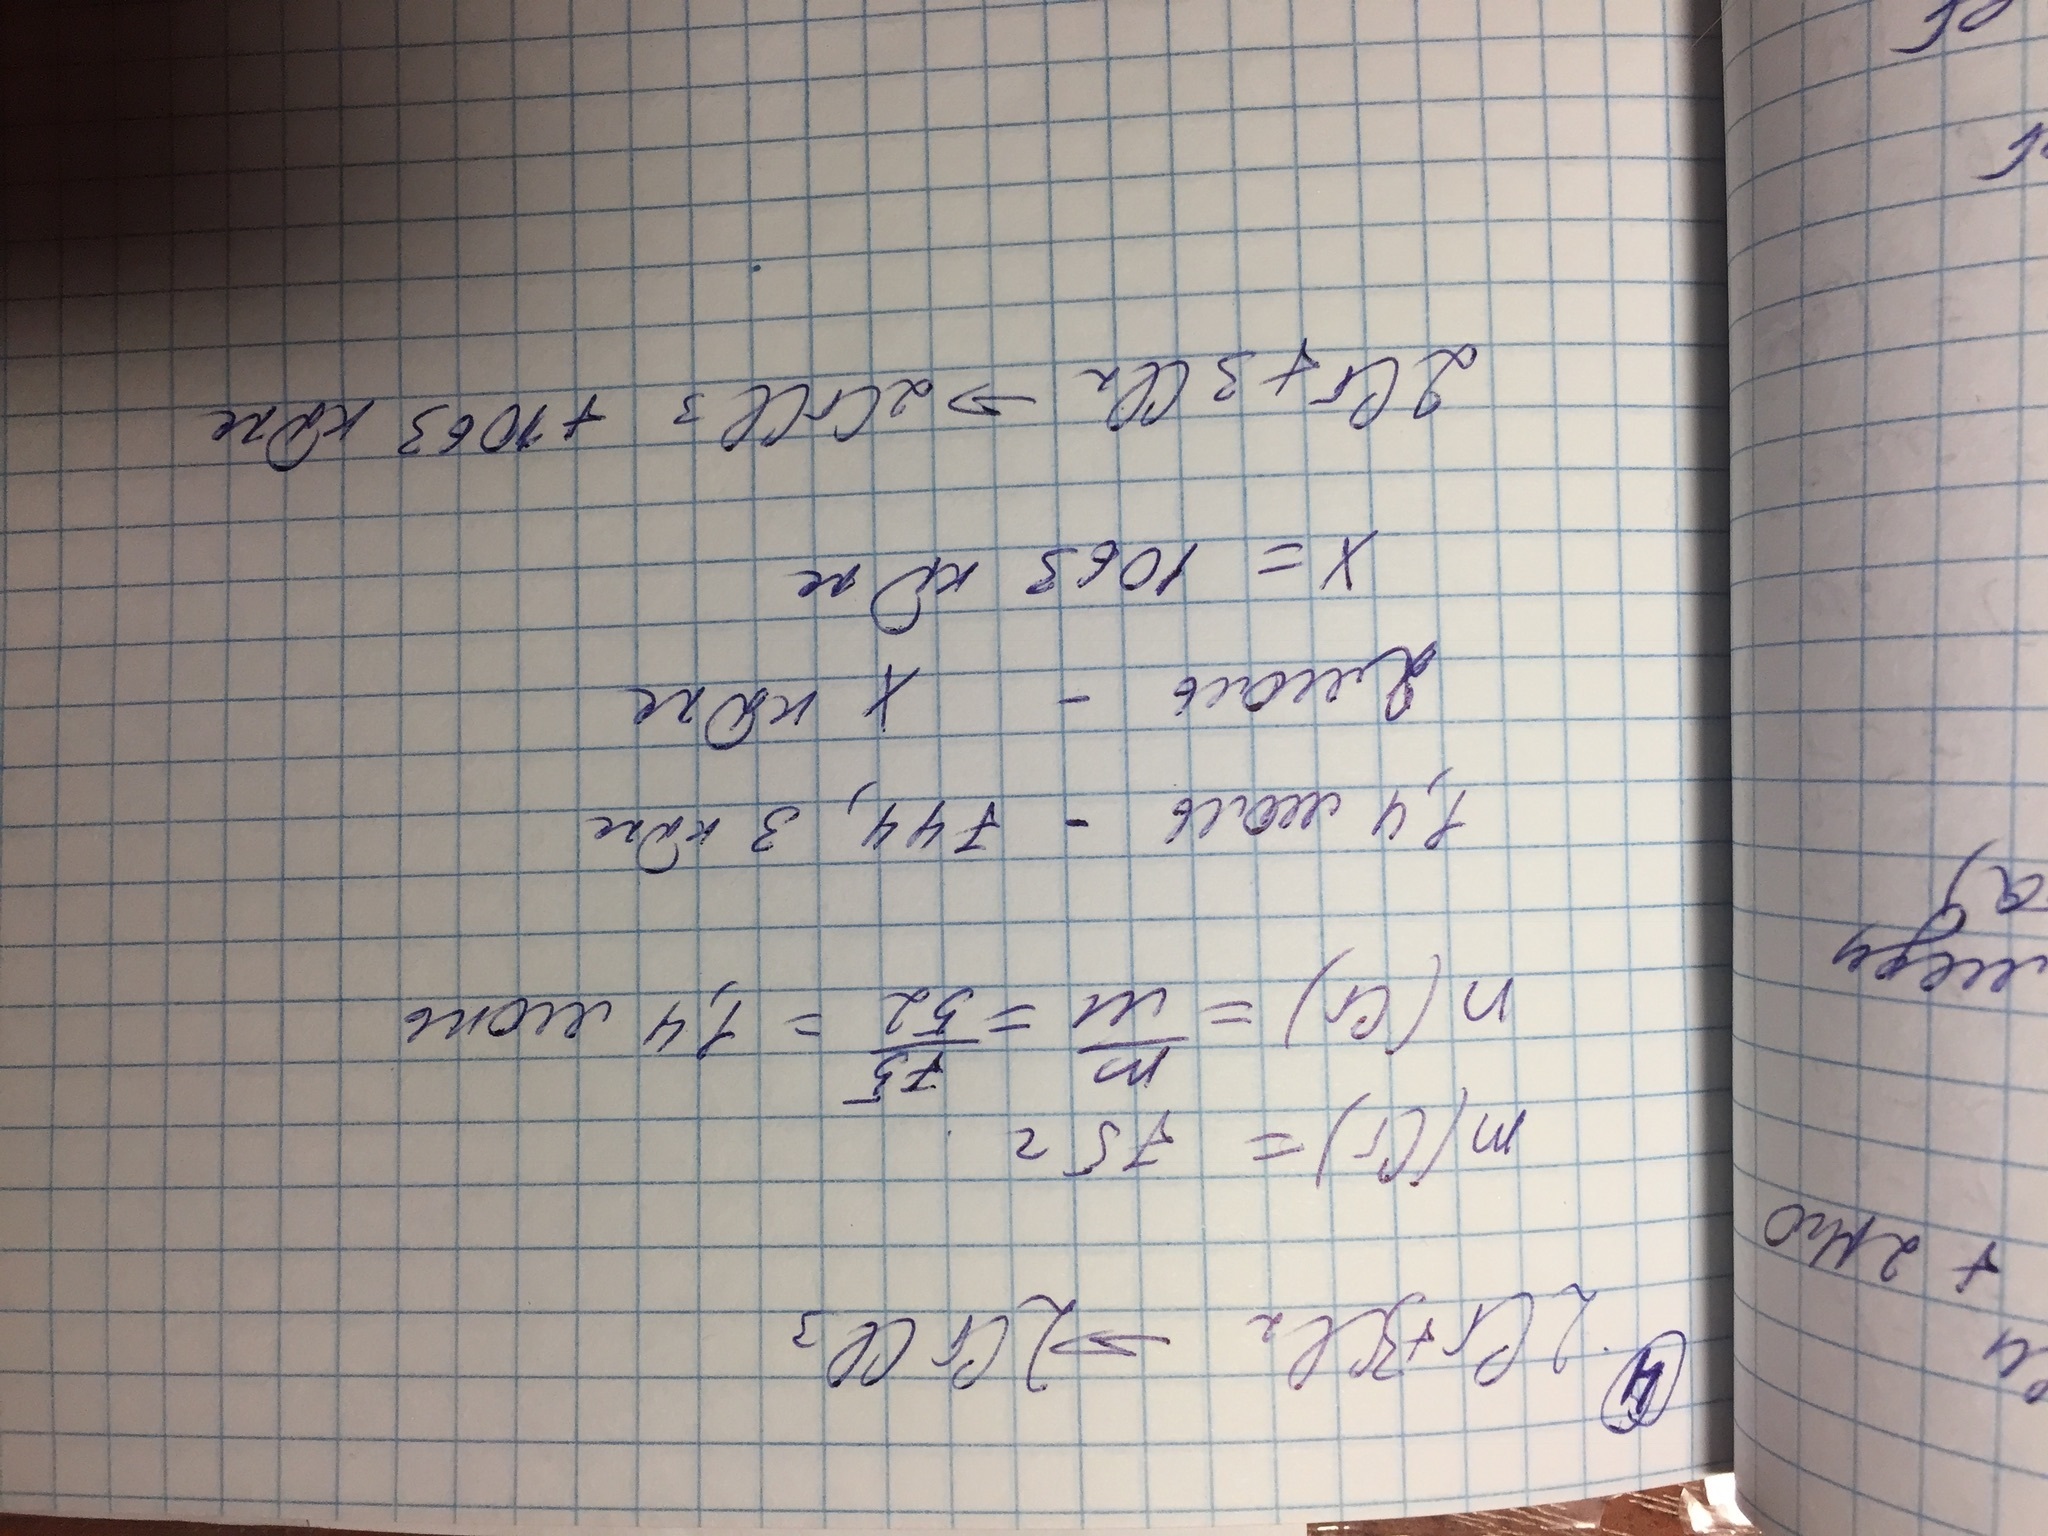 ④ 2Cr+3Cl₂ → 2CrCl₃
m(Cr) = 75 г
n(Cr) = m/M = 75/52 = 1,4 моль
1,4 моль - 744,3 кДж
2 моль - X кДж
X = 1063 кДж
2Cr+3Cl₂ → 2CrCl₃ +1063 кДж
+ 2H₂O
меди